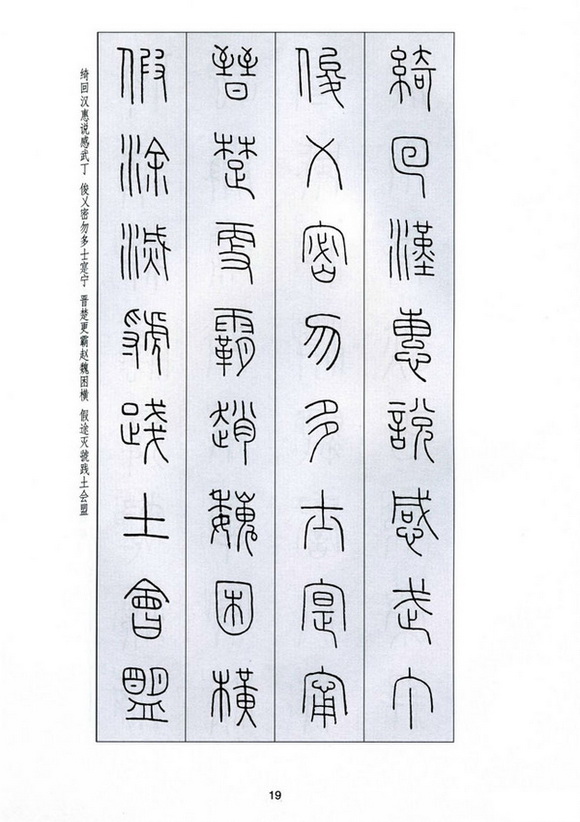 綺回漢惠說感武丁
俊乂密勿多士寔甯
晉楚更霸趙魏困橫
假涂滅虢踐土會盟
绮回汉惠说感武丁 俊乂密勿多士寔宁 晋楚更霸赵魏困横 假途灭虢践土会盟
19